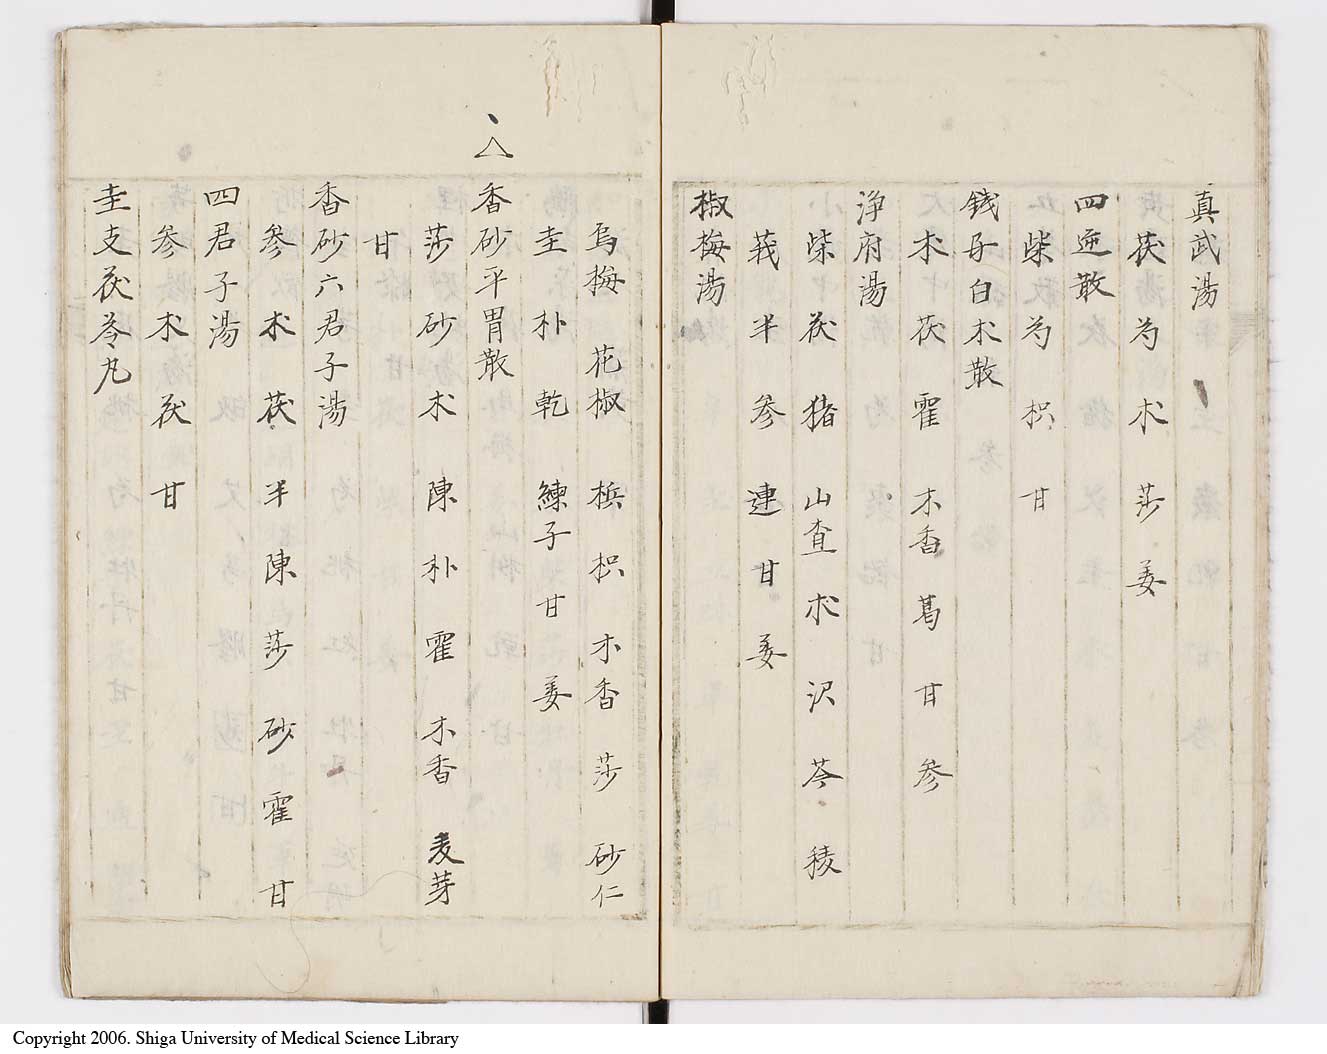 真武湯
茯 芍 朮 莎 姜
四逆散
柴 芍 枳 甘
銭子白朮散
朮 茯 霍 木香 葛 甘 参
浄府湯
柴 茯 猪 山査 朮 沢 芩 稜
莪 半 参 連 甘 姜
椒梅湯
烏梅 花椒 梹 枳 木香 莎 砂仁
圭 朴 乾 練子 甘 姜
△
香砂平胃散
莎 砂 朮 陳 朴 霍 木香 麦芽
甘
香砂六君子湯
参 朮 茯 半 陳 莎 砂 霍 甘
四君子湯
参 朮 茯 甘
圭支茯苓丸
Copyright 2006. Shiga University of Medical Science Library